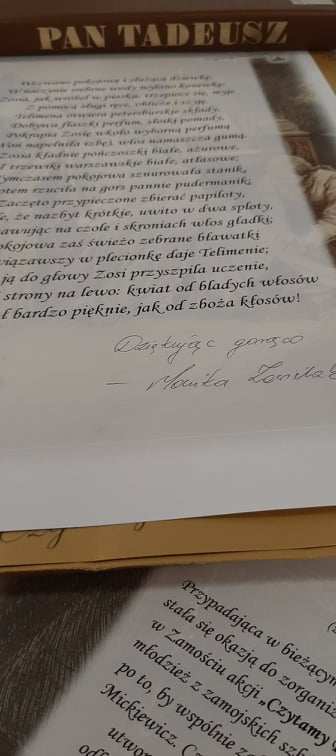 PAN TADEUSZ
Wezwano pokojowę i służącą dziewkę;
W naczynie srebrne wody wylano konewkę,
Zosia, jak wróbel w piasku, trzepiec się, myje
Z pomocą sługi ręce, oblicze i szyję.
Telimena otwiera petersburskie składy,
Dobywa flaszki perfum, słoiki pomady,
Pokrapia Zosię wkoło wyborną perfumą
(Woń napełniła izbę), włos namaszcza gumą.
Zosia kładnie pończoszki białe, ażurowe,
I trzewiki warszawskie białe, atłasowe;
Tymczasem pokojowa sznurowała stanik,
otem rzuciła na gors pannie pudermanik;
Zaczęto przypieczone zbierać papiloty,
e, że nazbyt krótkie, uwito w dwa sploty,
awując na czole i skroniach włos gładki;
okojowa zaś świeżo zebrane bławatki
wiązawszy w plecionkę daje Telimenie;
ją do głowy Zosi przyszpila uczenie,
strony na lewo: kwiat od bladych włosów
ł bardzo pięknie, jak od zboża kłosów!
Dziękując gorąco
– Monika
Przypadająca w bieżącym
stała się okazją do zorgani
w Zamościu akcji „Czytamy
młodzież z zamojskich szk
po to, by wspólnie
Mickiewicz.
utwor